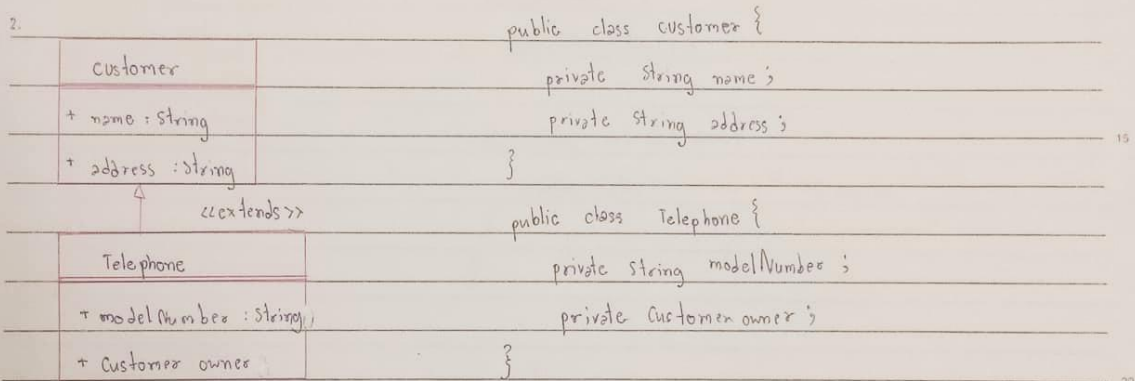 2.
Customer
+ name : String
+ address : String
<<extends>>
Telephone
+ modelNumber : String
+ Customer owner
public class customer {
private String name ;
private String address ;
}
public class Telephone {
private String modelNumber ;
private Customer owner ;
}
15